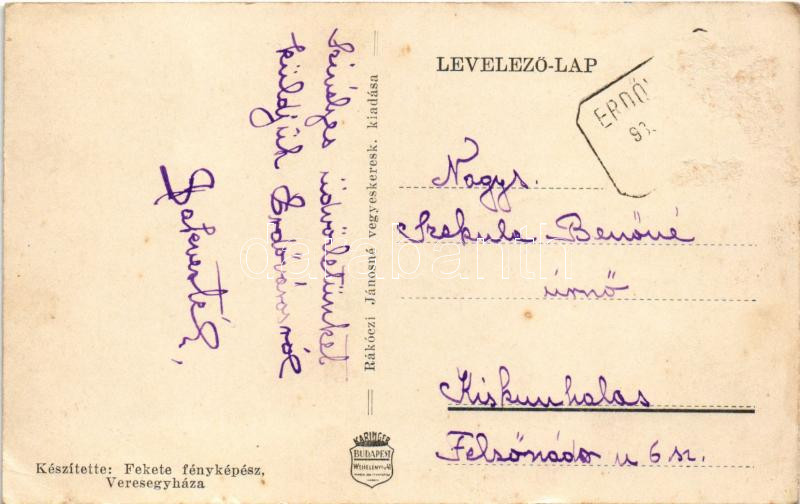 LEVELEZŐ-LAP
ERDŐ
93
Szívélyes üdvözletünket
küldjük Erdővárosról
Rákóczi Jánosné vegyeskeresk. kiadása
Nagys.
Szekula Benőné
úrnő
Kiskunhalas
Felsőnádor u 6 sz.
KARINGER
BUDAPEST
Készítette: Fekete fényképész,
Veresegyháza
darabanth